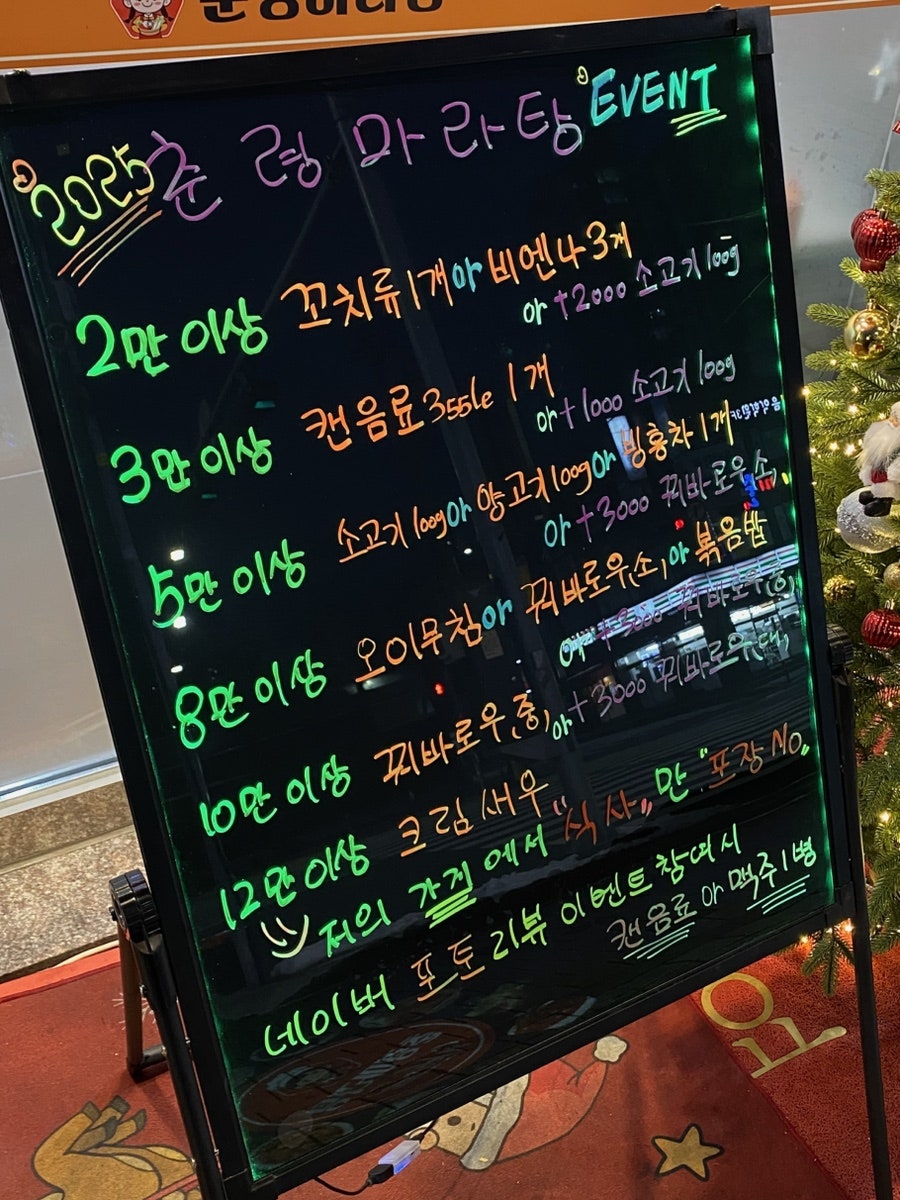 2025 춘령마라탕 EVENT
2만 이상 꼬치류 1개 or 비엔나 3개
or +2000 소고기 100g
3만 이상 캔음료 355ml 1개
or +1000 소고기 100g
5만 이상 소고기 100g or 양고기 100g or 빙홍차 1개
or +3000 꿔바로우(소)
8만 이상 오이무침 or 꿔바로우(소) or 볶음밥
or +3000 꿔바로우(중)
10만 이상 꿔바로우(중)
or +3000 꿔바로우(대)
12만 이상 크림새우
저의 가게에서 "식사"만 "포장 No"
네이버 포토 리뷰 이벤트 참여시
캔음료 or 맥주 1병